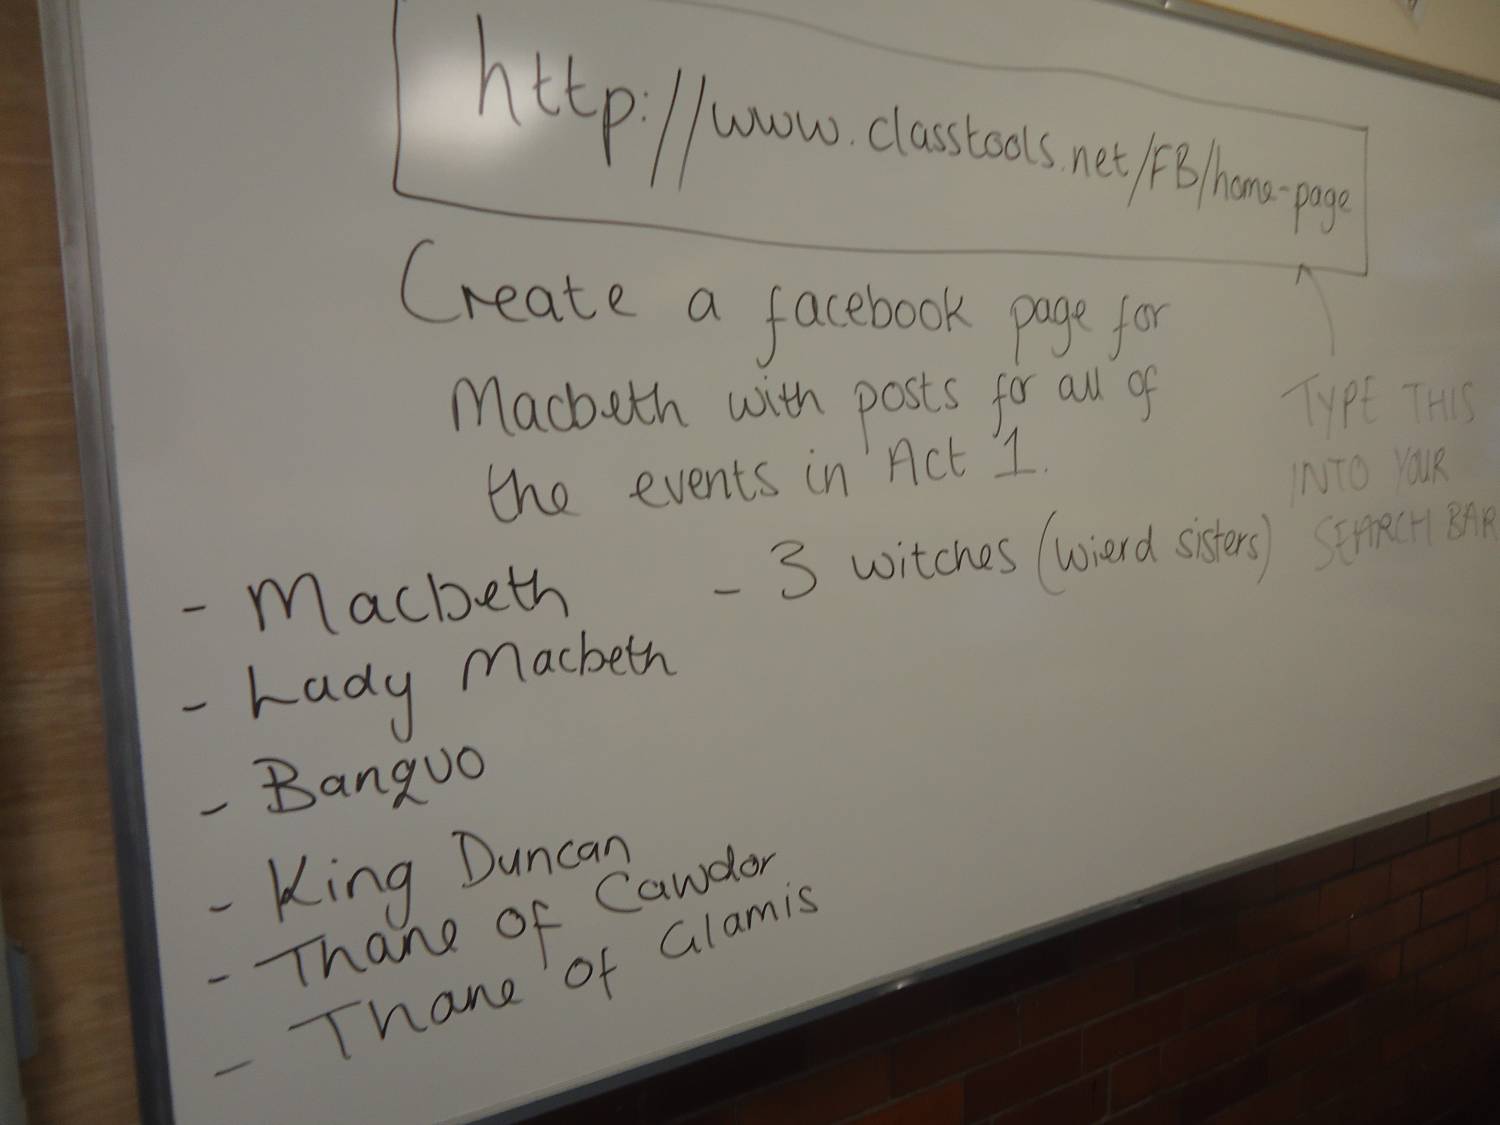 http://www.classtools.net/FB/home-page
Create a facebook page for
Macbeth with posts for all of
the events in Act 1.
TYPE THIS
INTO YOUR
SEARCH BAR
- Macbeth
- Lady Macbeth
- Banquo
- King Duncan
- Thane of Cawdor
- Thane of Glamis
- 3 witches (wierd sisters)